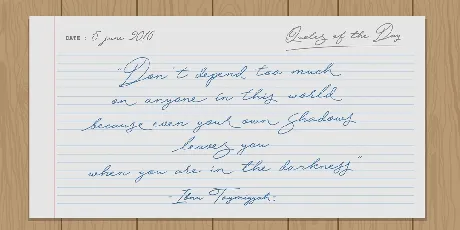 DATE : 15 june 2016
Quotes of the Day
"Don't depend too much
on anyone in this world
because even your own shadows
leaves you
when you are in the darkness"
- Ibnu Taymiyyah.